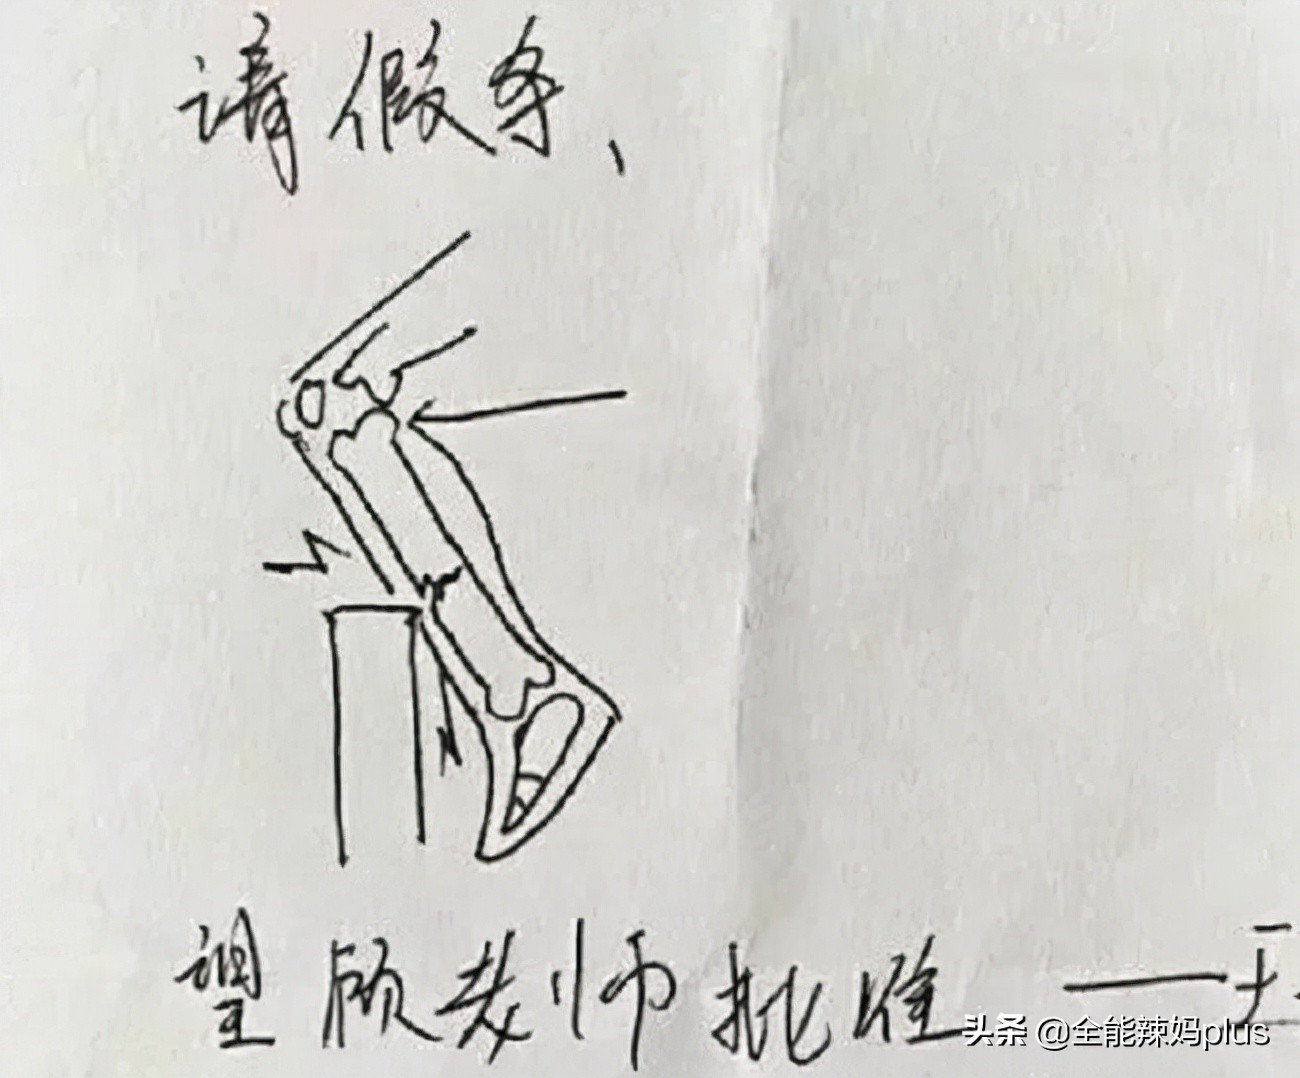 请假条、
望顾老师批准——王
头条 @全能辣妈plus